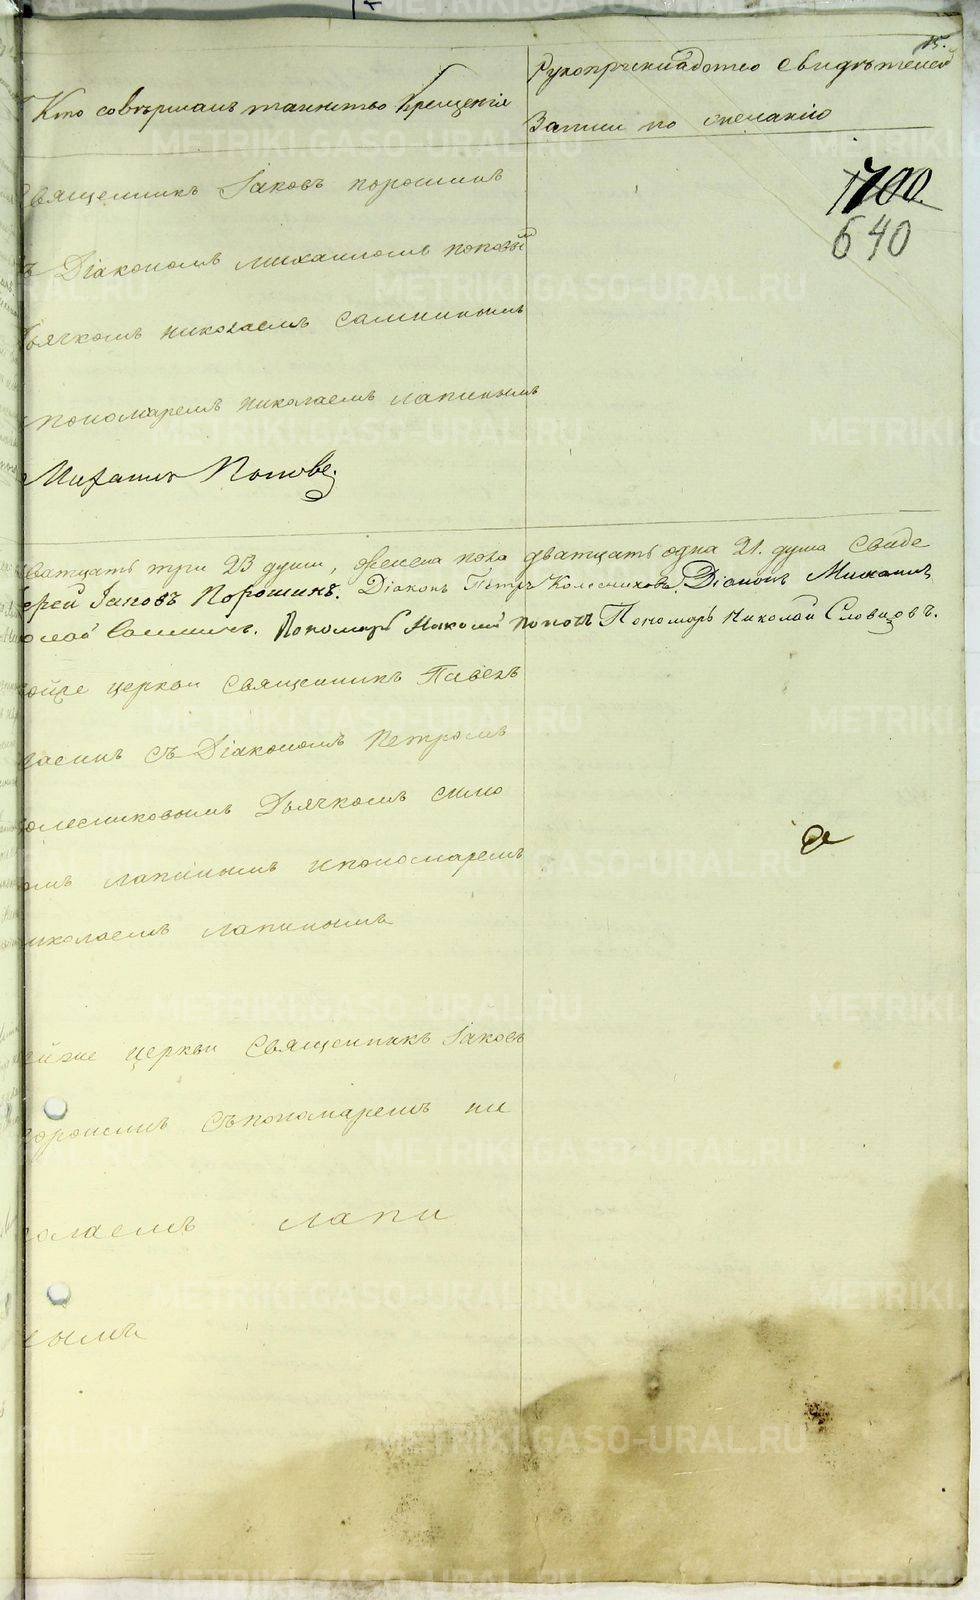 15.
Кто совершалъ таинство Крещенія
Рукоприкладство свидѣтелей
Записи по желанію
Священникъ Іаковъ порошинъ
1700.
640
съ Діакономъ михаиломъ поповым
Дьячкомъ николаемъ
пономаремъ николаемъ лапинымъ
Михаилъ Поповъ.
дватцать три 23 души, женска пола дватцать одна 21. душа Свиде
Іерей Іаковъ Порошинъ. Діаконъ Петръ Колесниковъ. Діаконъ Михаилъ
Пономарь Николай Поповъ Пономарь Николай Словцовъ.
тойже церкви священникъ Павелъ
съ Діакономъ петромъ
колесниковымъ Дьячкомъ симо
номъ лапинымъ ипономаремъ
николаемъ лапинымъ
тойже церкви Священникъ Іаковъ
порошинъ съпономаремъ ни
колаемъ лапи
нымъ
METRIKI.GASO-URAL.RU